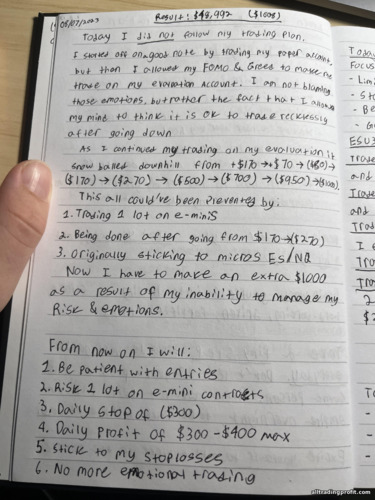 08/07/2023
Result: $49,992 ($1008)
Today I did not follow my trading plan.
I started off on a good note by trading my paper account,
but then I allowed my FOMO & Greed to make me
trade on my evaluation account. I am not blaming
those emotions, but rather the fact that I allowed
my mind to think it is OK to trade recklessly
after going down
As I continued my trading on my evaluation it
snow balled downhill from +$170 → +$70 → ($80) →
($170) → ($270) → ($500) → ($700) → ($950) → ($1008).
This all could've been prevented by:
1. Trading 1 lot on e-minis
2. Being done after going from $170 → ($270)
3. Originally sticking to micros ES/NQ
Now I have to make an extra $1000
as a result of my inability to manage my
Risk & emotions.
From now on I will:
1. Be patient with entries
2. Risk 1 lot on e-mini contracts
3. Daily stop of ($300)
4. Daily Profit of $300-$400 max
5. stick to my stoplosses
6. No more emotional trading
alltradingprofit.com